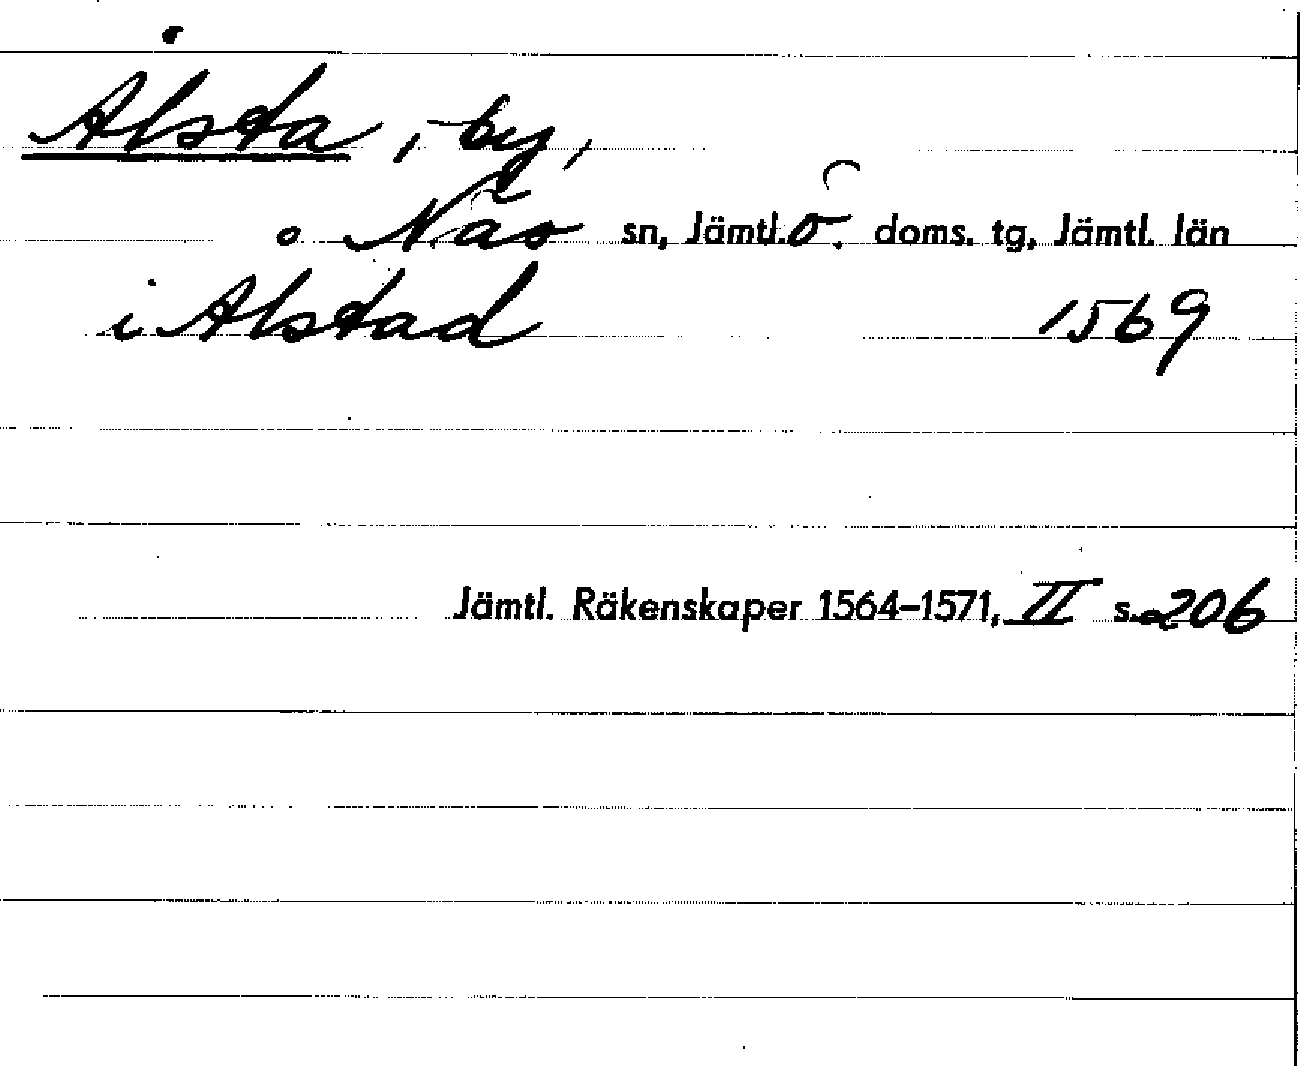 Ålsta, by,
Näs sn, Jämtl. ö. doms. tg, Jämtl. län
i Alstad 1569
Jämtl. Räkenskaper 1564–1571, II s. 206